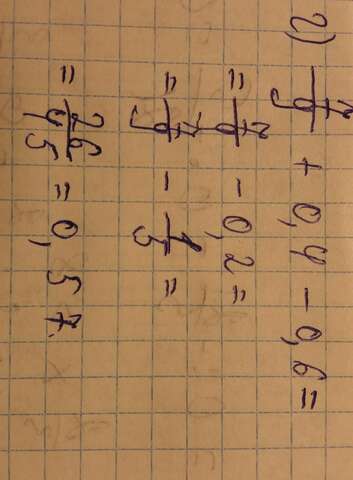 2) 7/9 + 0,4 − 0,6 =
= 7/9 − 0,2 =
= 7/9 − 1/5 =
= 26/45 = 0,57.